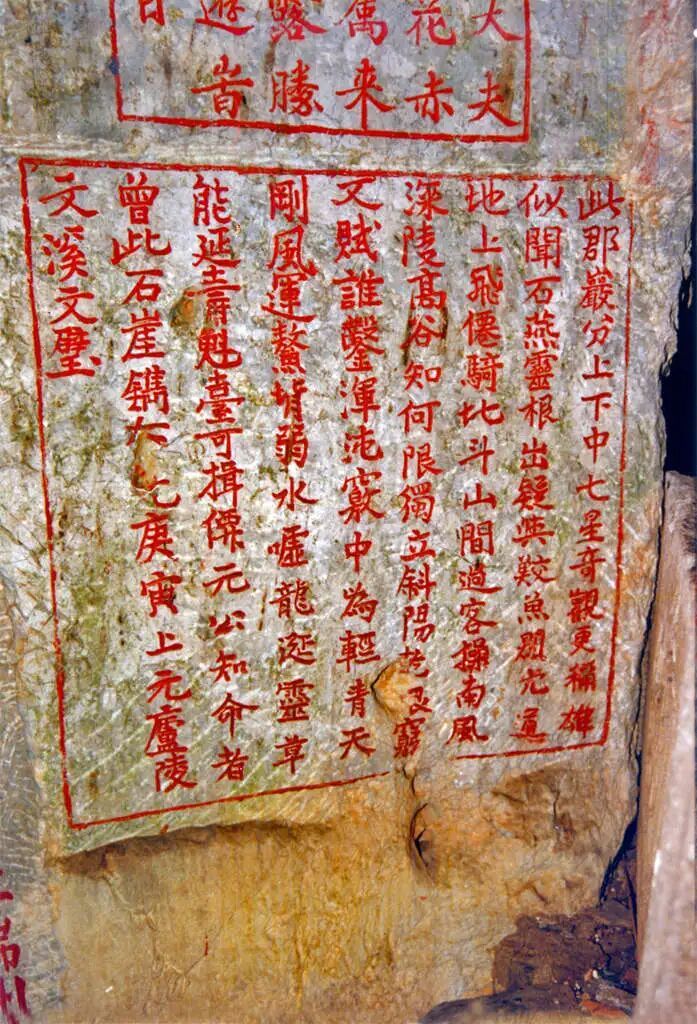 夫
花赤
来
露勝
遊旹
日
此郡巖分上下中七星奇觀更稱雄
似聞石燕靈根出疑與鮫魚穴通
地上飛僊騎北斗山間過客操南風
深陵高谷知何限獨立斜陽窮
又賦誰鑿渾沌竅中為輕青天
剛風運鰲背弱水嘘龍涎靈草
能延壽魁臺可揖僊元公知命者
曾此石崖鐫庚寅上元廬陵
文溪文璧